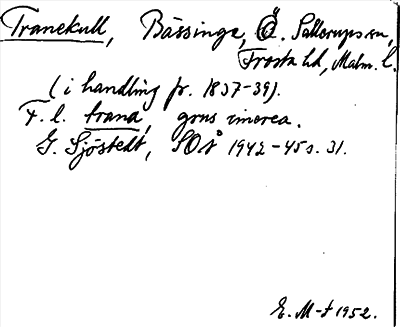 Tranekull, Bässinge, Ö. Sallerups sn,
Frosta hd, Malm. l.
(i handling fr. 1837-39).
F. l. trana, grus cinerea.
G. Sjöstedt, SOÅ 1942-45 s. 31.
E. M-t 1952.